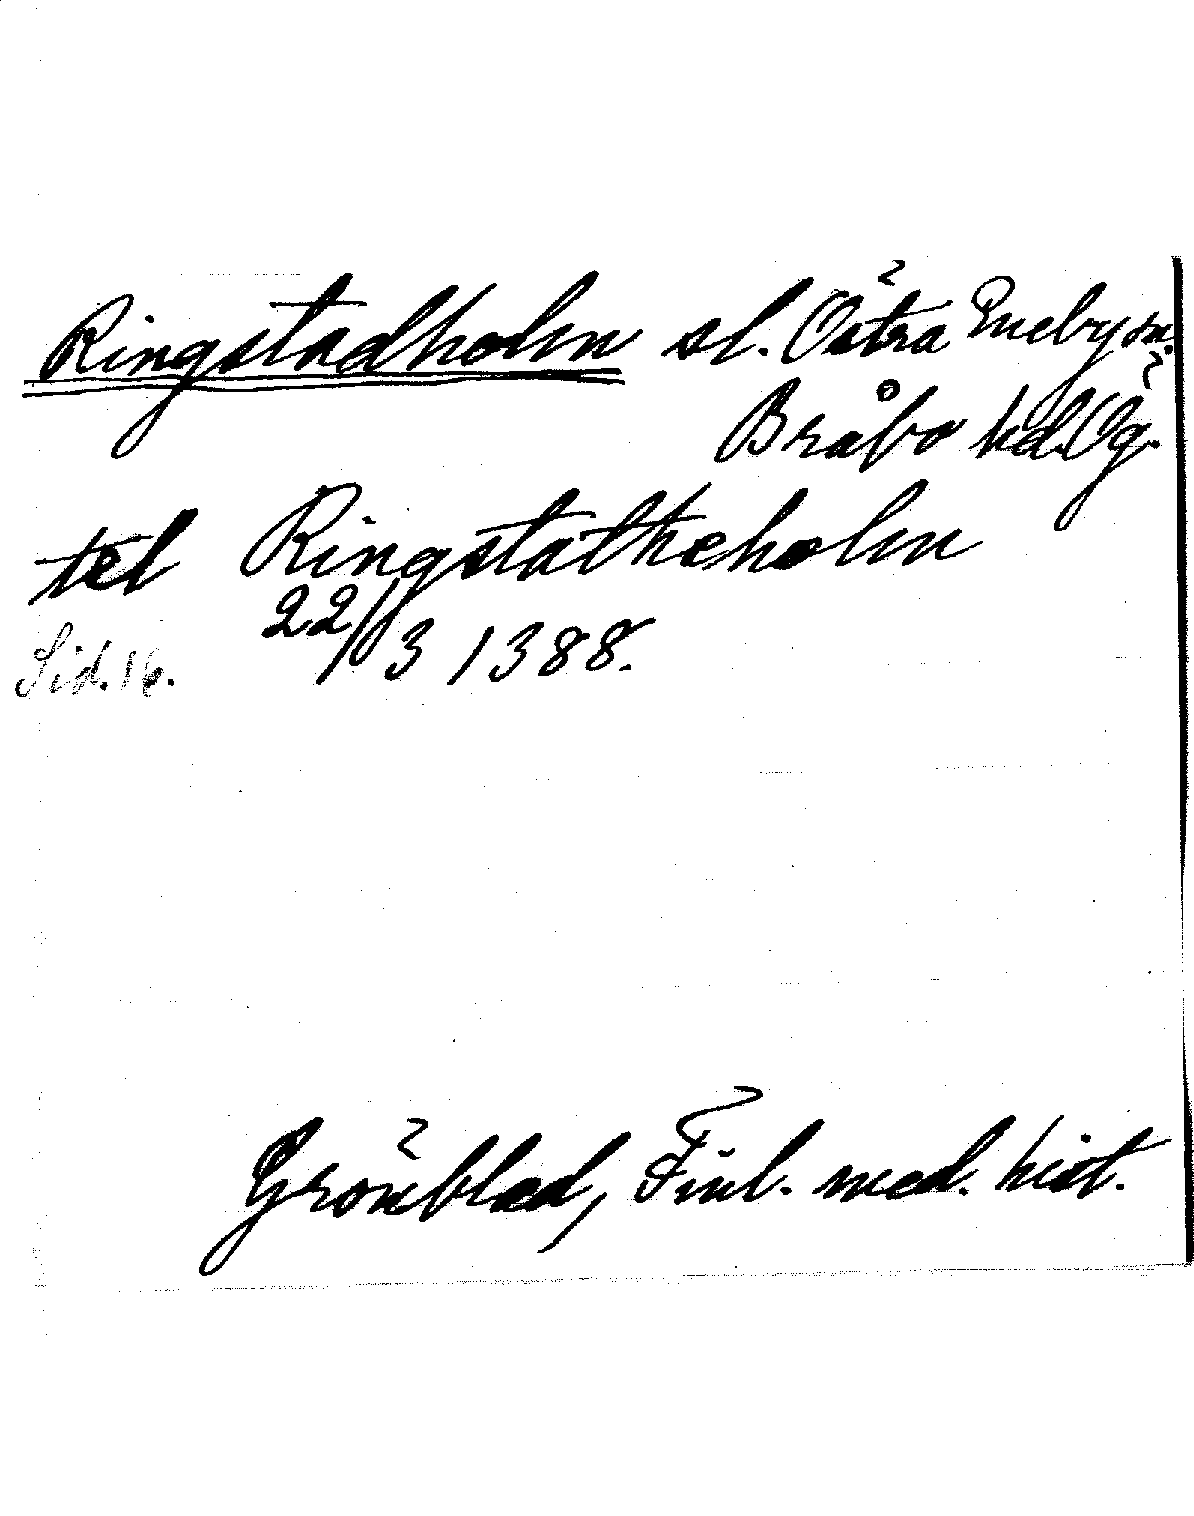 Ringstadholm sl. Östra Eneby sn.
Bråbo hd. Ög.
tel Ringstatheholm
22/3 1388.
Sid. 16.
Grönblad, Finl. med. hist.